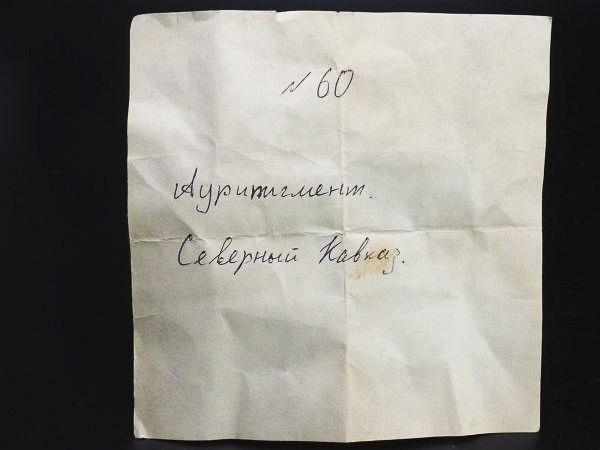 N 60
Ауритигмент.
Северный Кавказ.